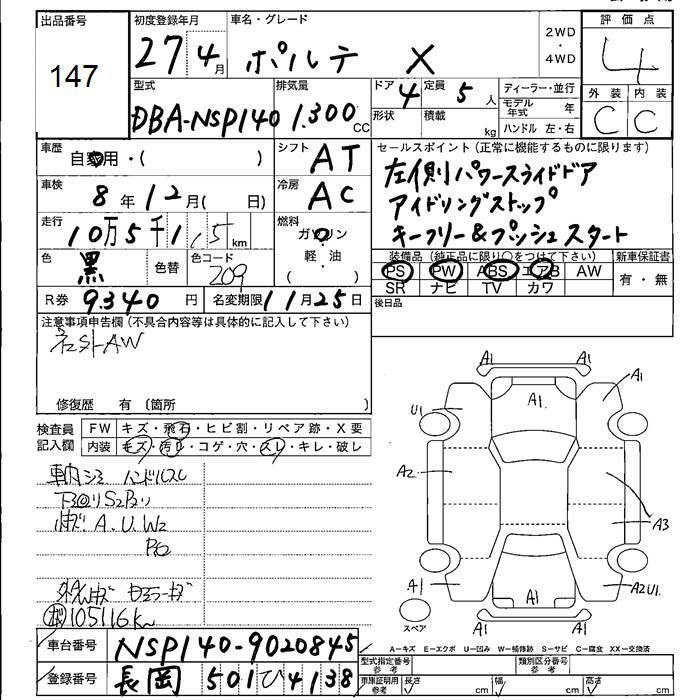 出品番号
147
初度登録年月
27 4月
車名・グレード
ポルテ X
2WD・4WD
評価点
4
外装 内装
C C
型式
DBA-NSP140
排気量
1.300 CC
ドア 4 定員 5 人
形状 積載 kg
ディーラー・並行
モデル年式 年
ハンドル 左・右
車歴
自家用・( )
シフト
AT
車検
8年12月( 日)
冷房
AC
走行
10万5千1,5 km
燃料
ガソリン
軽・油
( )
色
黒
色替
色コード
209
R券 9.340円 名変期限 11月25日
セールスポイント(正常に機能するものに限ります)
左側パワースライドドア
アイドリングストップ
キーフリー&プッシュスタート
装備品(純正品に限り○をつけて下さい)
PS PW ABS エアB AW
SR ナビ TV カワ
新車保証書
有・無
後日品
注意事項申告欄(不具合内容等は具体的に記入して下さい)
社外AW
修復歴 有 〔箇所 〕
検査員記入欄
FW キズ・飛石・ヒビ割・リペア跡・X要
内装 キズ・汚れ・コゲ・穴・スレ・キレ・破レ
車内シミ ハンドルスレ
下回りS2
A.U.W2
105116Km
A1 A1
A1 A1
U1
A2
A3
A1 A2U1
A1
A1 A1
スペア
A-キズ E-エクボ U-凹み W-補修跡 S-サビ C-腐食 XX-交換済
車台番号 NSP140-9020845
登録番号 長岡 501 ひ 4138
型式指定番号 参考
類別区分番号 参考
車庫証明用 参考
長さ cm 幅 cm 高さ cm